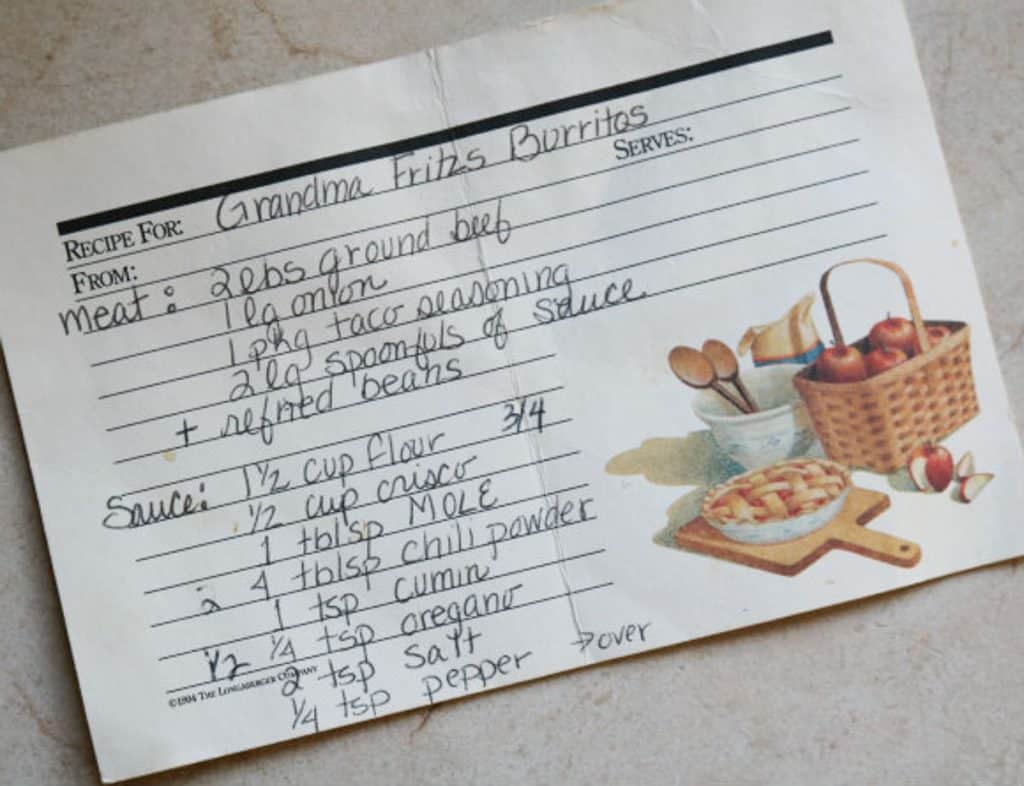 RECIPE FOR: Grandma Fritzs Burritos
FROM: SERVES:
meat: 2 lbs ground beef
1 lg onion
1 pkg taco seasoning
2 lg spoonfuls of sauce
+ refried beans
Sauce: 1 1/2 cup flour 3/4
1/2 cup crisco
1 tblsp MOLE
2 4 tblsp chili powder
1 tsp cumin
1/2 1/4 tsp oregano
2 tsp salt
©1994 THE LONGABERGER COMPANY
1/4 tsp pepper → over